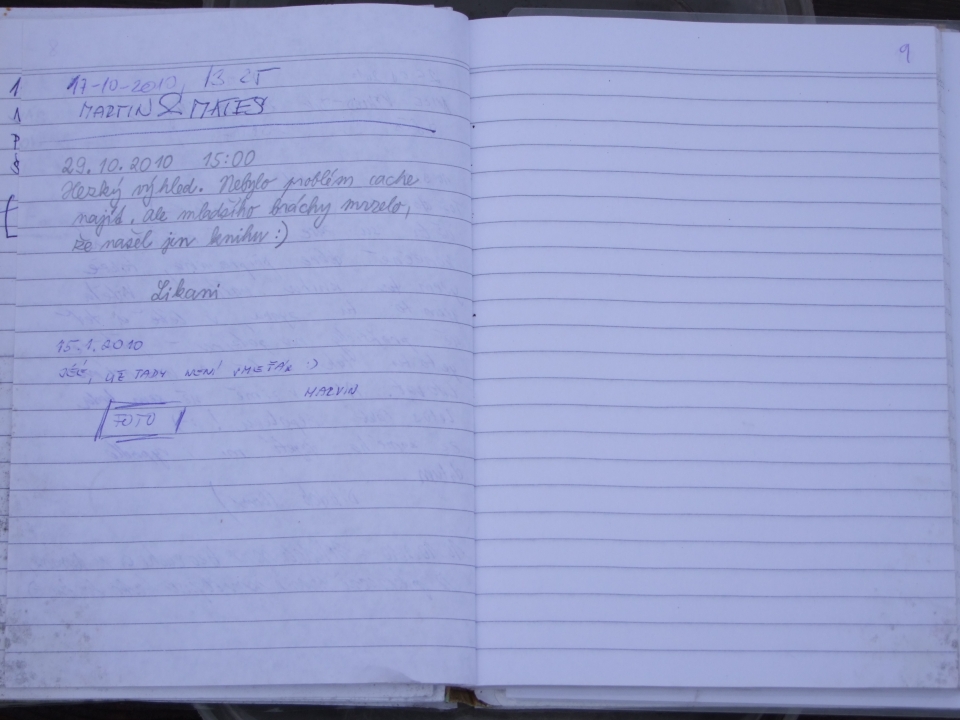 8
9
17-10-2010, 13:25
MARTIN & MATES
29.10.2010 15:00
Hezký výhled. Nebylo problém cache
najít, ale mladšího bráchy mrzelo,
že našel jen knihu :)
Likani
15.1.2010
JÉÉ, UŽ TADY NENÍ :)
MARVIN
FOTO